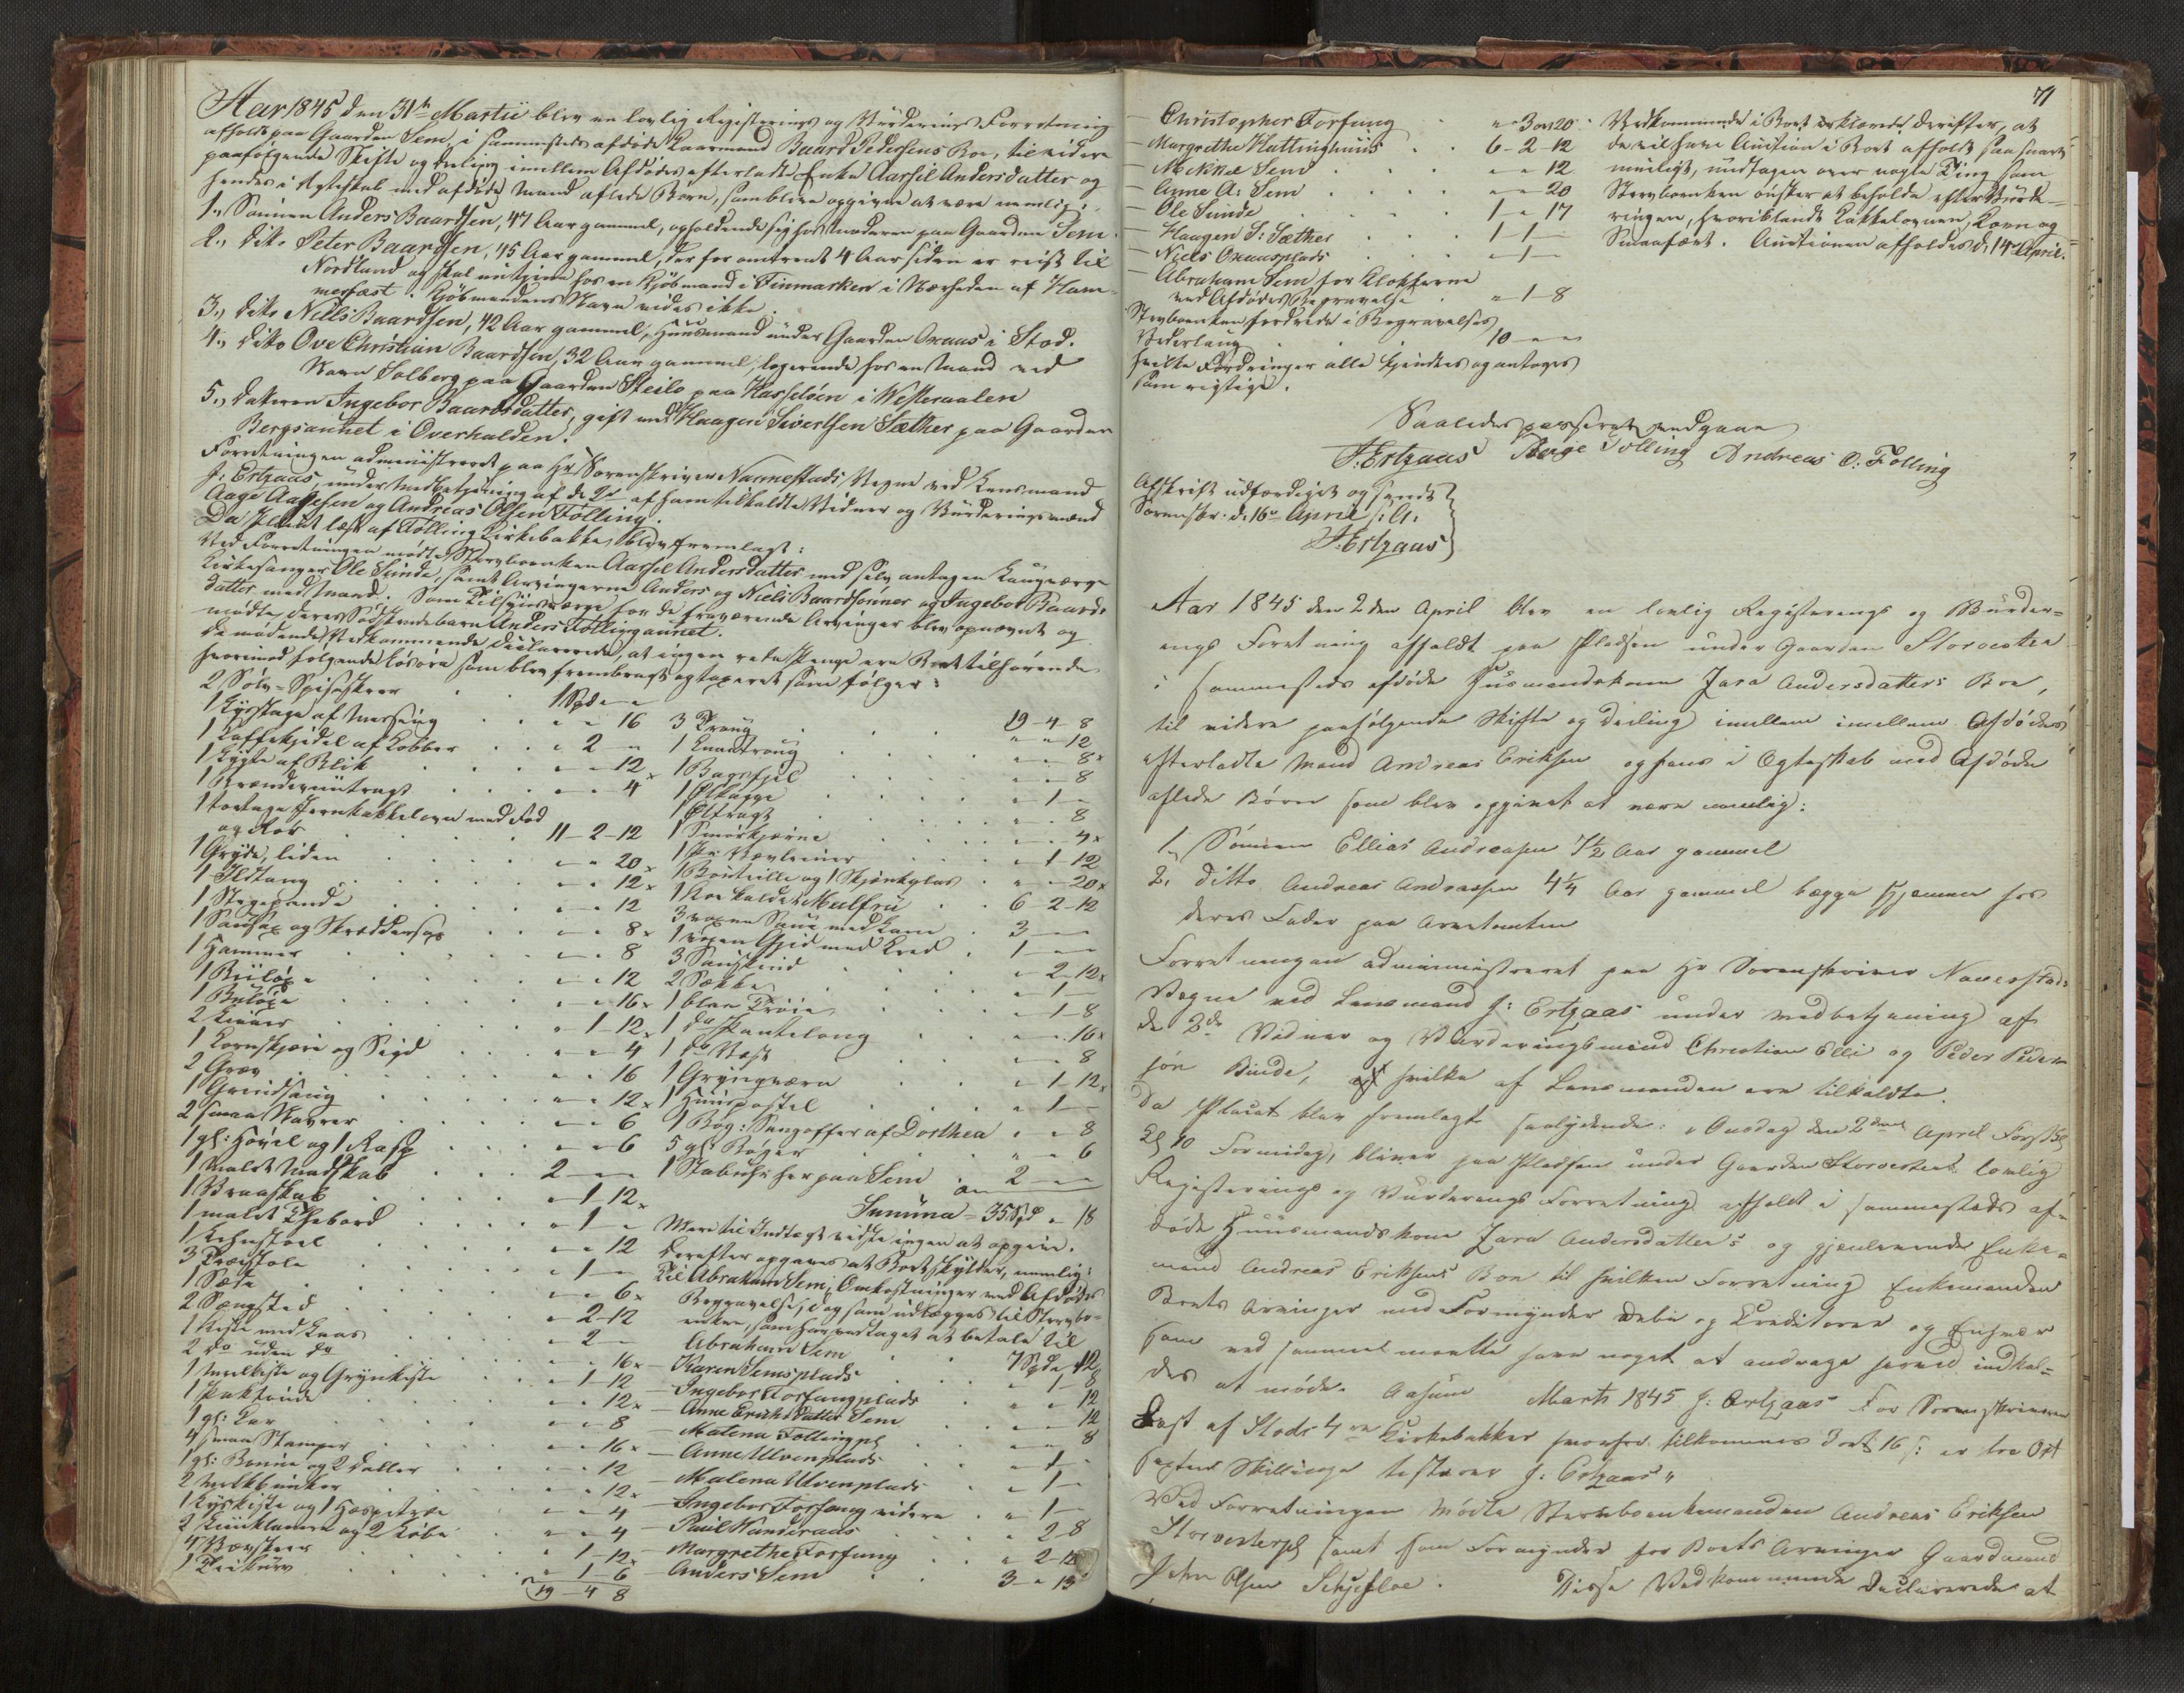 Aar 1845 den 31te Martii blev en lovlig Registerings og Vurderings Forretning
afholdt paa Gaarden Sem i sammesteds afdøde Kaarmand Baard Pedersens Boe, til videre
paafølgende Skifte og deeling imellem Afdødes efterladte Enke Aarsil Andersdatter og
hendes i Ægteskab med afdøde Mand aflede Børn, som blev opgivne at være nemlig:
1., Sønnen Anders Baardsen, 47 Aar gammel, opholdende sig hos Moderen paa Gaarden Sem.
2., dito Peter Baardsen, 45 Aar gammel, der for omtrent 4 Aar siden er reist til
Nordland og skal nu tjene hos en Kjøbmand i Finmarken i Nærheden af Ham=
merfest. Kjøbmandens Navn vides ikke.
3., dito Niels Baardsen, 42 Aar gammel, Huusmand under Gaarden Oxaas i Stod.
4., dito Ove Christian Baardsen, 32 Aar gammel, logerende hos en Mand ved
Navn Solberg paa Gaarden Steilo paa Hasseløen i Westeraalen
5., Datteren Ingebor Baardsdatter, gift med Haagen Sivertsen Sæther paa Gaarden
Bergsaunet i Overhalden.
Forretningen administreret paa Hr Sorenskriver Nannestads Vegne ved Lensmand
J. Ertzaas, under Medbetjening af de 2de af ham tilkaldte Vidner og Vurderingsmænd
Aage Aagesen og Andreas Olsen Følling.
Da Placat læst af Følling Kirkebakke, blev fremlagt:
Ved Forretningen mødte Stervboenken Aarsel Andersdatter med selv antagen Laugværge
Kirkesanger Ole Sunde, samt Arvingerne Anders og Niels Baardsønner og Ingebor Baards
datter med Mand. Som Tilsynsværge for de fraværende Arvinger blev opnævnt og
mødte deres Sødskendebarn Anders Føllingaunet.
De mødende Vedkommende declarerede, at ingen rede Penge ere Boet tilhørende
hvorimod følgende Løsøre som blev frembragt og taxeret som følger:
2 Sølv-Spiseskeer 1 Spd - -
1 Lysstage af Messing - - 16
1 Kaffekjedel af Kobber - 2 -
1 Lygte af Blik - - 12
1 Brændeviinstragt - - 4
1 toetages Jernkakkelovn med Fod
og Rør 11-2-12
1 Gryde, liden - - 20x
1 Ildtang - - 12x
1 Stegepande - - 12
1 Sausax og Skreddersax - - 8x
1 Hammer - - 8
1 Biiløxe - - 12
1 Buløxe - - 16x
2 Kniver - 1-12x
1 Kornskjære og Sigd - - 4
2 Grev - - 16
1 Grindsaug - - 12x
2 smaa Navrer - - 6
1 gl: Høvel og 1 Rasp - - 6
1 malet Madskab 2 - -
1 Braaskab - 1 12x
1 malet Thebord - 1 -
1 Lehnstoel - - 12
3 Træstole - 1 -
1 Sæte - - 6x
2 Sængsted - 2-12
1 Kiste med Laas - 2 -
2 do uden do - - 16x
1 Meelkiste og Grynkiste - 1-12
1 Paktrinde - - 12x
1 gl: Kar - - 8
4 smaa Stamper - - 16x
1 gl: Bomme og 2 Daller - - 12
2 Melkbunker - - 12x
1 Lyskiste og 1 Haspetræe - - 4
2 Kniiklamre og 2 Køber - - 4
4 Bærskeer - 1-12x
1 Teikurv - 1-6
19-4 8
3 Traug 19-4-8
1 Knaatraug - - 12
1 Bagefjel - - 8x
1 Ølkagge - - 8
1 Øltragt - 1 -
1 Smørkjerne - - 8
1 Par Vævleiner - - 4x
1 Bouteille og 1 Skjænkglas - 1 12
1 Koe kaldet Meelfrü - - 20x
3 voxen Sau med Lam 6 2-12
1 voxen Gjed med Kred 3 - -
3 Sauskind 1 - -
2 Sække - 2-12x
1 blaa Trøie - 1 -
1 do Pantelong - 1-8
1 do Vest - - 16x
1 Grynqværn - - 8
1 Huuspostel - 1-12x
1 Bog: Sangoffer af Dorthea - 1 -
5 gl: Bøger - - 8
1 Stabuhr her paa Sem - - 6
2 - -
Summa = 35 Spd - 18
Mere til Indtægt vidste ingen at opgive.
Derefter opgaves at Boet skylder, nemlig:
Til Abraham Sem, Omkostninger ved Afdødes
Begravelse, dog som udlægges til Stervbo=
enken, som har paataget at betale til
Abraham Sem 7 Spd - 12
— Karen Semsplads - 1-8
— Ingebor Forfangplads - - 12
— Anne Erichsdatter Sem - - 12
— Malena Føllingpl - - 8
— Anne Ulvenplads - 1 -
— Malena Ulvenplads - 1 -
— Ingebor Forfang videre - 1 -
— Paul Wanderaas - 2 8
— Margrethe Forfang - 2-12
— Anders Sem 3 - 13
71
— Christopher Forfang - 3 ort 20
— Margrethe Hattinghuus 6-2-12
— Mekkel Sem - - 12
— Anne A: Sem - - 20
— Ole Sunde 1 - 17
— Haagen S: Sæther 1-1-
— Niels Oxaasplads - 1 -
— Abraham Sem for Klokkerne
ved Afdødes Begravelse - 1-8
Stervboenken fordrede i Begravelses
Vederlaug 10 - -
hvilke Fordringer alle kjendtes og antoges
som rigtige.
Vedkommende i Boet erklærede derefter, at
de vil have Auction i Boet afholdt saa snart
mueligt, undtagen over nogle Ting som
Stervboenken ønsker at beholde efter Vurde=
ringen, hvoriblandt Kakkelovnen, Koen og
Smaafæet. Auctionen afholdes d: 14de April.
Saaledes passeret vedgaaer
J. Ertzaas Aage Følling Andreas O: Følling
Afskrift udfærdiget og sendt
Sorenskr. d: 16de April s. A.
J. Ertzaas
Aar 1845 den 2den April blev en lovlig Registerings og Vurder=
ings Foretning afholdt paa Pladsen under Gaarden Storoesten
i sammesteds afdøde Husmandskone Zara Andersdatters Boe,
til videre paafølgende Skifte og Deiling imellem imellem Afdødes
efterladte Mand Andreas Eriksen og hans i Egteskab med Afdøde
aflede Børn som blev opgivet at være nemlig:
1, Sønnen Ellias Andreasen 7½ Aar gammel
2, ditto Andreas Andreassen 4¼ Aar gammel begge hjemme hos
deres Fader paa Arvetomten
Forretningen administreret paa Hr Sorenskriver Nannestads
Vegne ved Lensmand J: Ertzaas under medbetjening af
de 2de Vidner og Vurderingsmænd Christian Elli og Peder Peder
søn Binde, hvilke af Lensmanden ere tilkaldte.
Da Placat blev fremlagt saalydende: "Onsdag den 2den April Førsk
Kl 10 Formidag, bliver paa Pladsen under Gaarden Storoesten lovlig
Registerings og Vurderings Forretning afholdt i sammesteds af=
døde Huusmandskone Zara Andersdatter's og gjenlevende Enke=
mand Andreas Eriksens Boe til hvilken Forretning Enkemanden
Boets Arvinger med Formynder Debi og Creditorer og Enhver
som ved sammel maatte have noget at andrage herved indkal=
des at møde. Aasum Marts 1845 J: Ertzaas For Sorenskriveren
Læst af Stods 4re Kirkebakker hvorfor tilkommer 3 ort 16 s: er tre Ort
sexten Skillinge testerer J: Ertzaas"
Ved Forretningen Mødte Stervboenkemanden Andreas Eriksen
Storoestenpl samt som Formynder for Boets Arvinger Gaardmand
John Olsen Schjefloe. Disse Vedkommende Declarerede at